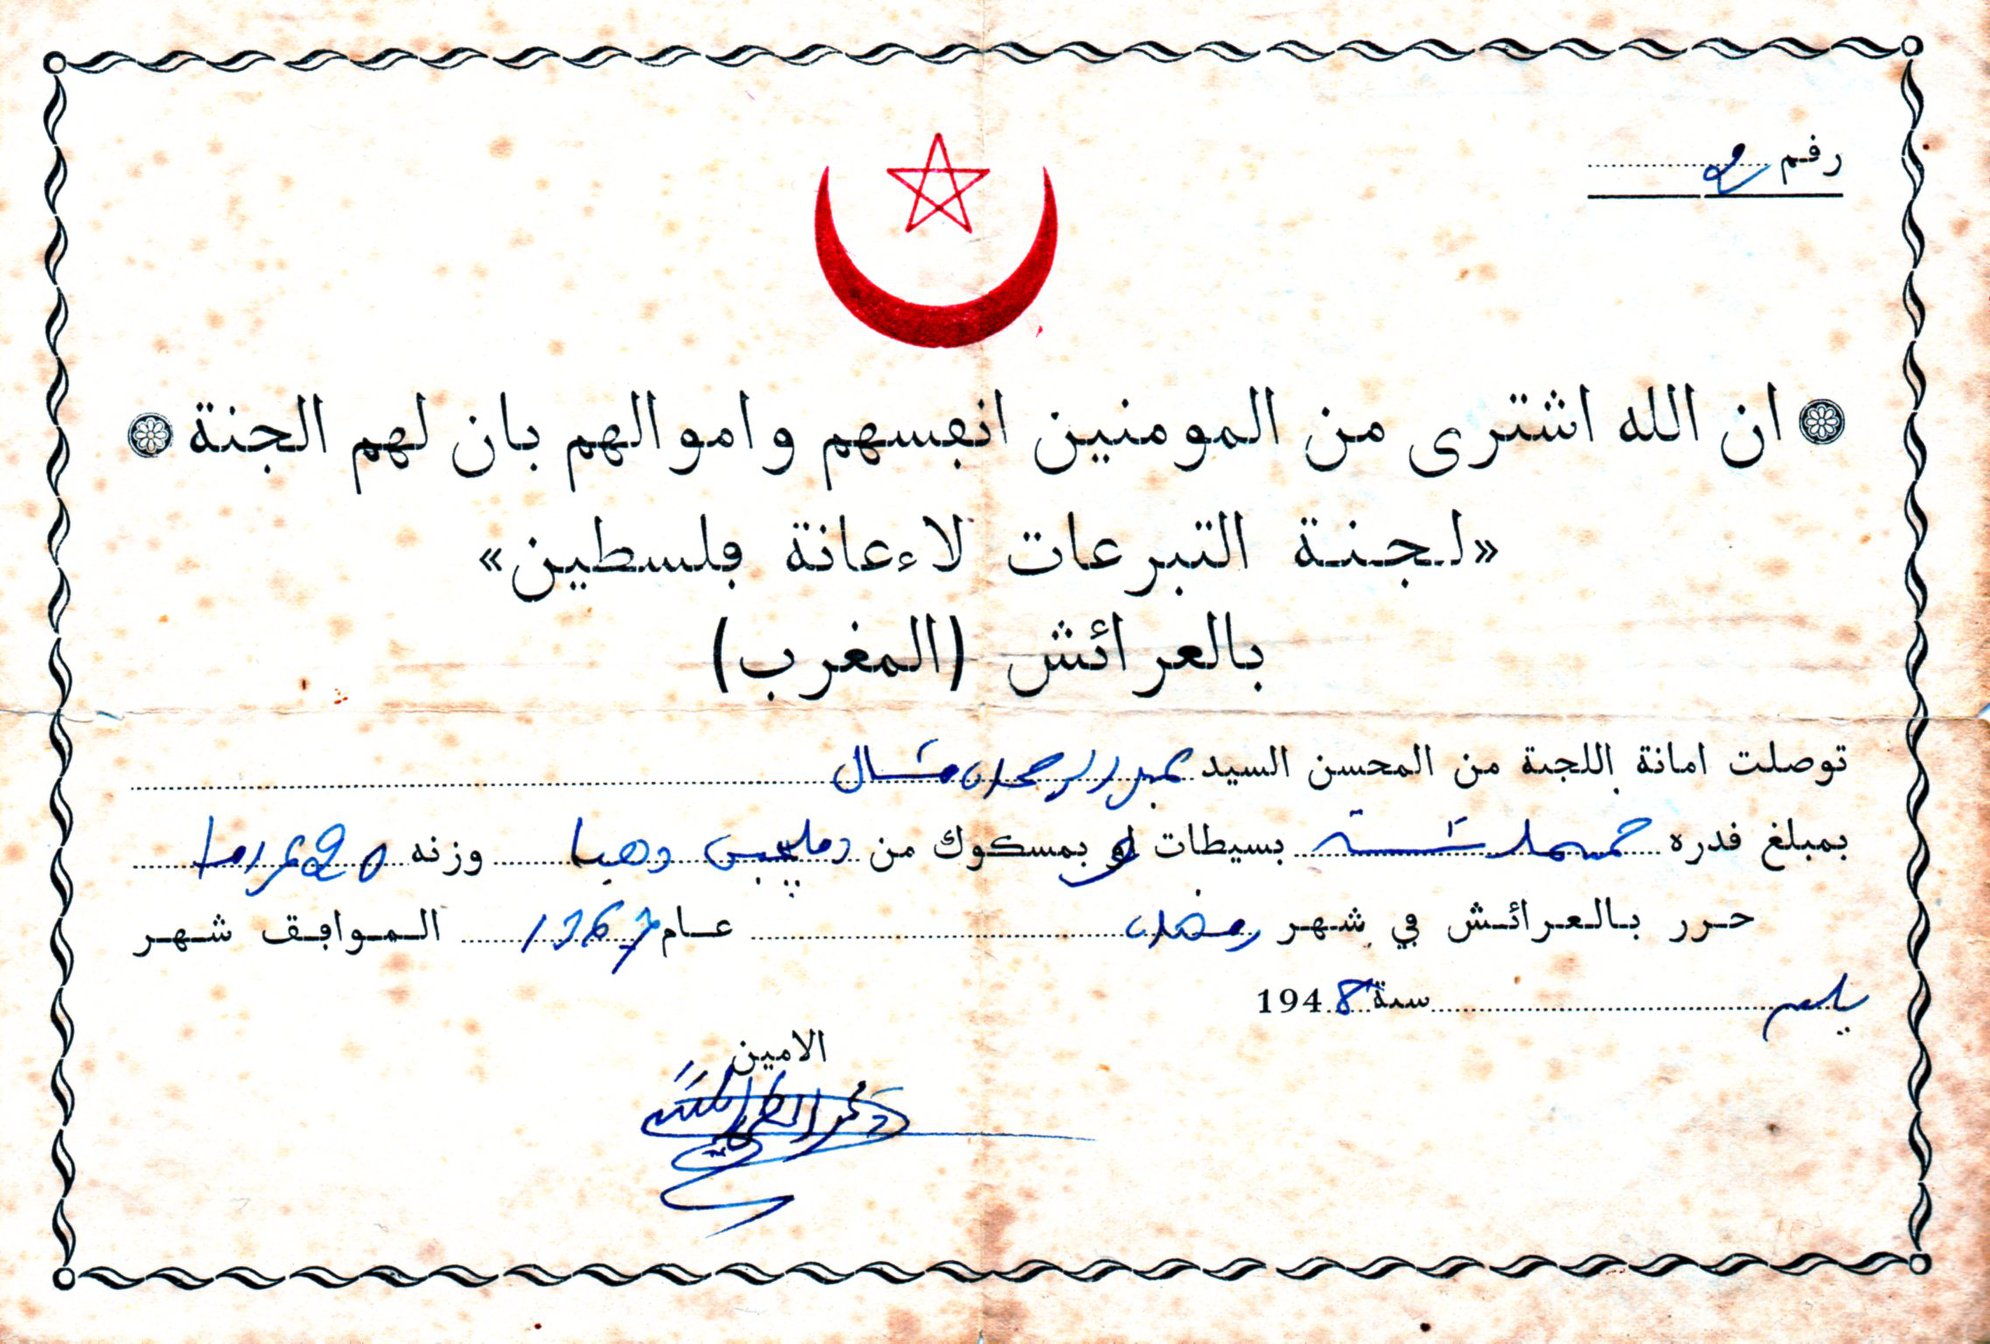 رفم
ان الله اشترى من المومنين انفسهم واموالهم بان لهم الجنة
«لجنة التبرعات لاءعانة ڢلسطين»
بالعرائش (المغرب)
توصلت امانة اللجنة من المحسن السيد عبد الرحمان مشال
بمبلغ فدره خمسمائة بسيطات او بمسكوك من دمليجين ذهبا وزنه
حرر بالعرائش في شهر رمضان عام 1367 الموافق شهر
سنة 1948
الامين